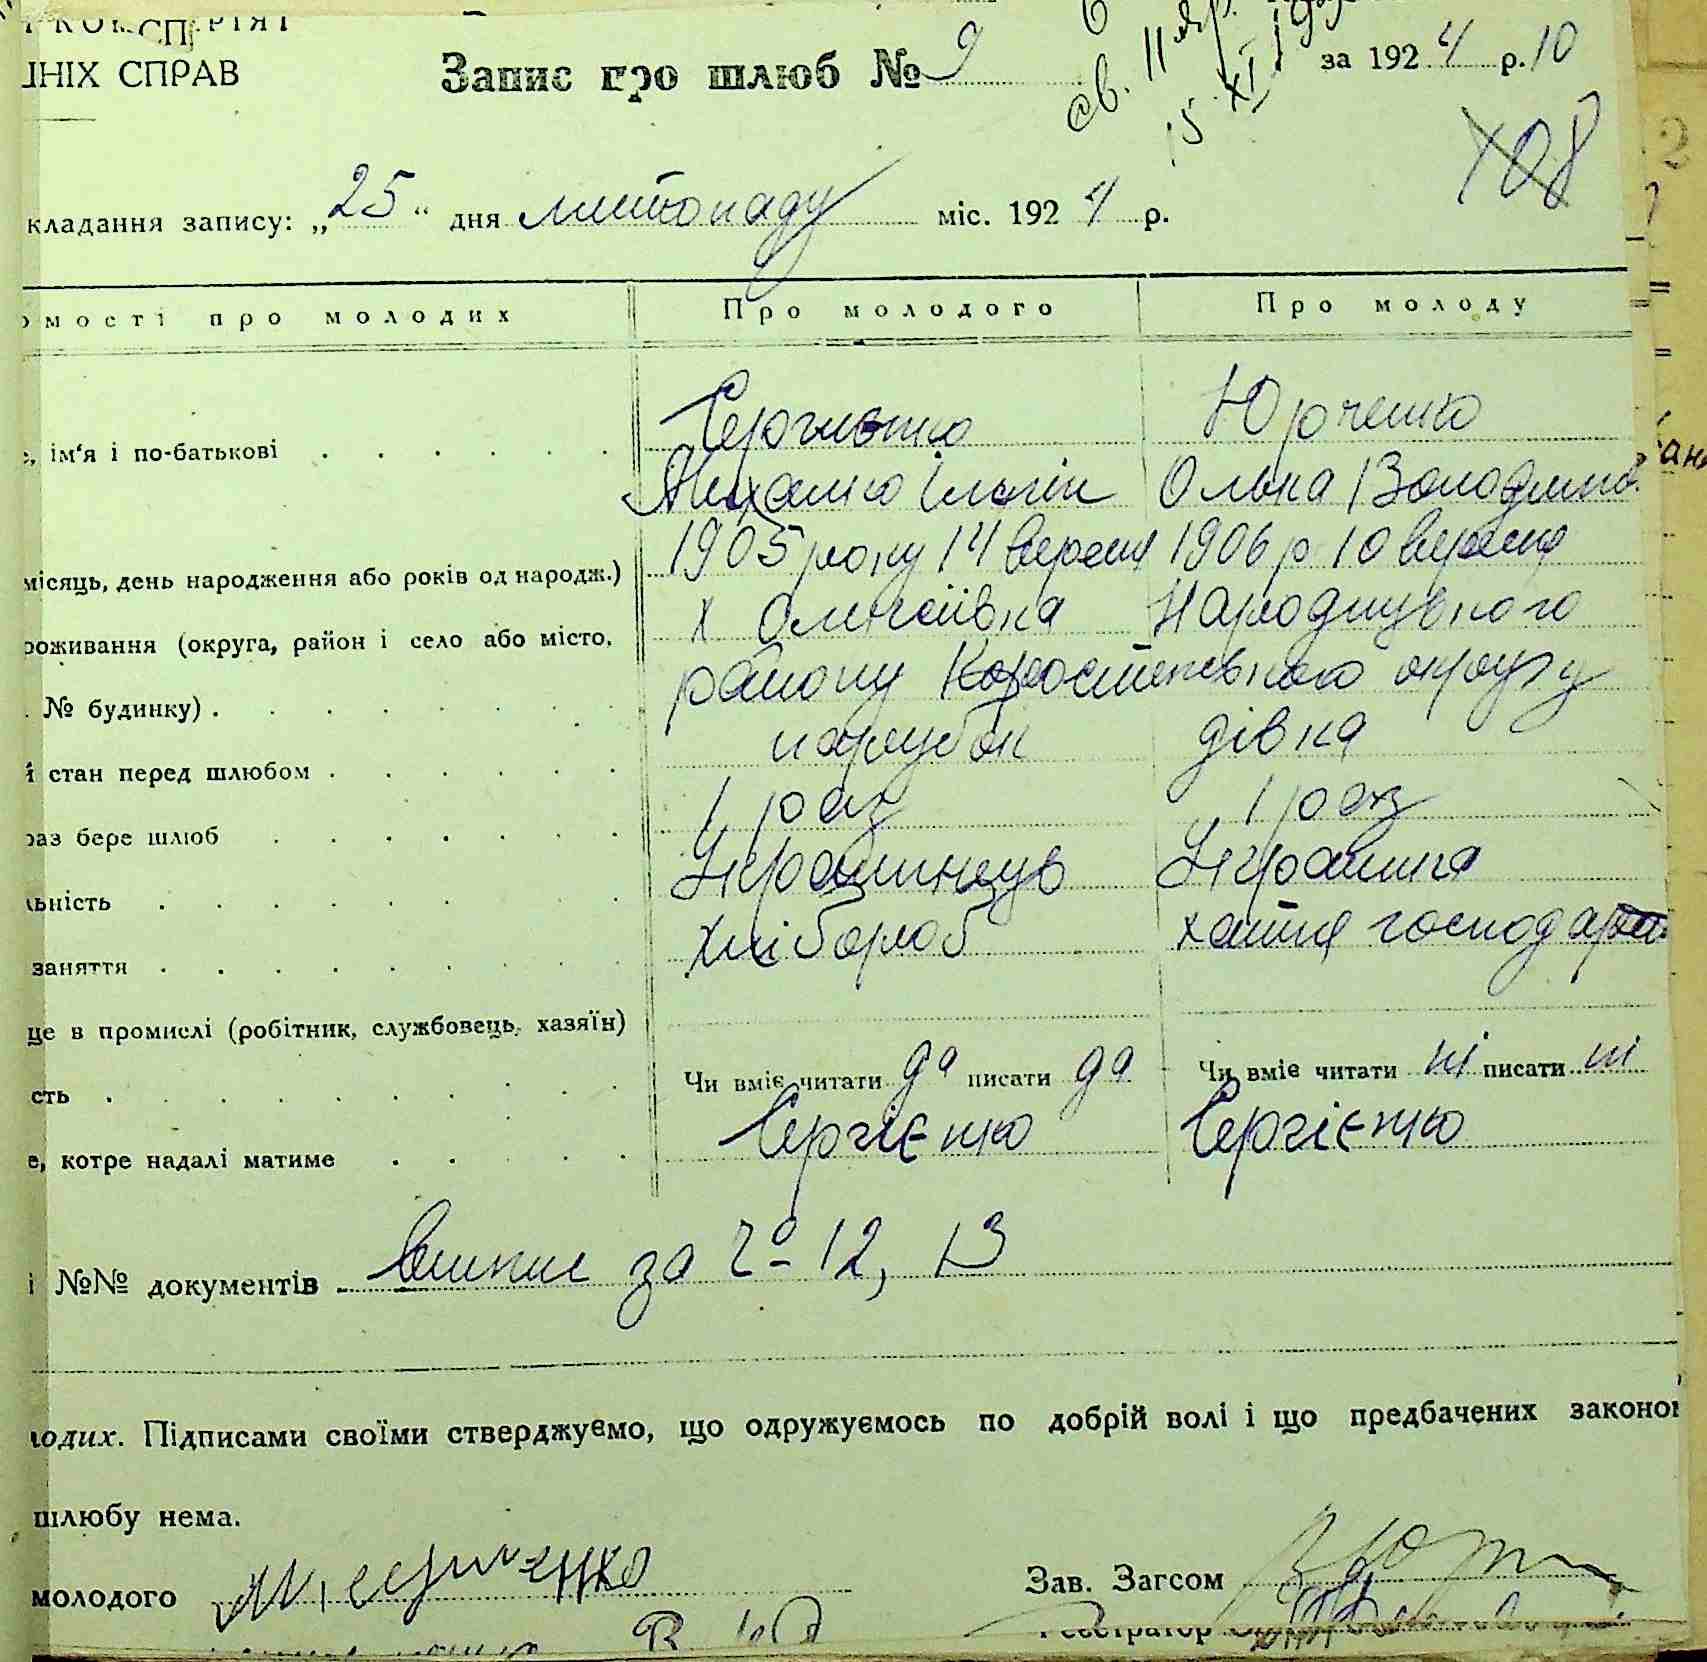 ШНІХ СПРАВ
Запис про шлюб № 9 за 1924 р. 10
св. 11
15 XI
108
кладання запису: „25“ дня листопаду міс. 1924 р.
омості про молодих Про молодого Про молоду
Сергиенко Юрченко
е, ім‘я і по-батькові
Михайло Ільгін Олька Володимів.
місяць, день народження або років од народж.) 1905 року 14 вересня 1906 р 10 вересня
роживання (округа, район і село або місто, х Олексіївка Народицького
№ будинку) району Коростенського округу
й стан перед шлюбом парубок дівка
раз бере шлюб 1 раз 1 раз
льність Українцув Українка
заняття хлібороб хатня господарка
це в промислі (робітник, службовець, хазяїн)
сть Чи вміє читати да писати да Чи вміє читати ні писати ні
е, котре надалі матиме Сергієнко Сергієнко
і №№ документів Виписи за Чо 12, 13
лодих. Підписами своїми стверджуємо, що одружуємось по добрій волі і що предбачених законом
шлюбу нема.
молодого Зав. Загсом
Реєстратор